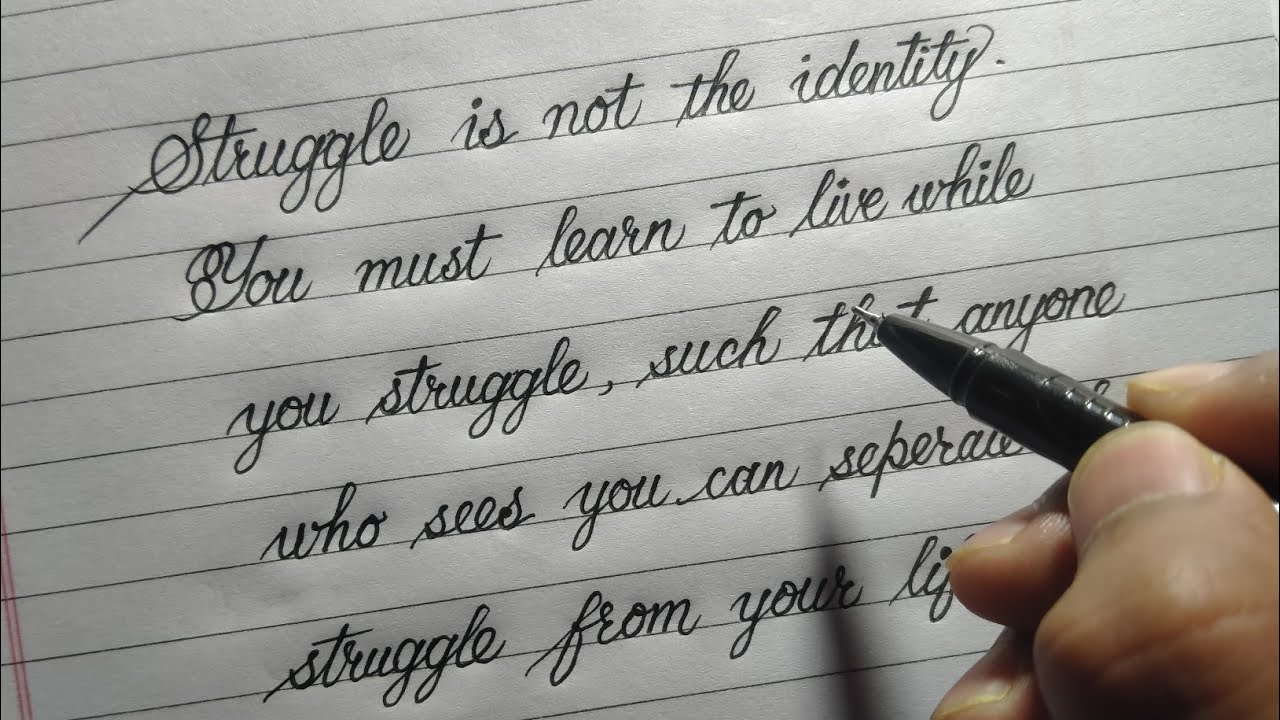 Struggle is not the identity.
You must learn to live while
you struggle, such that anyone
who sees you can seperate
struggle from your